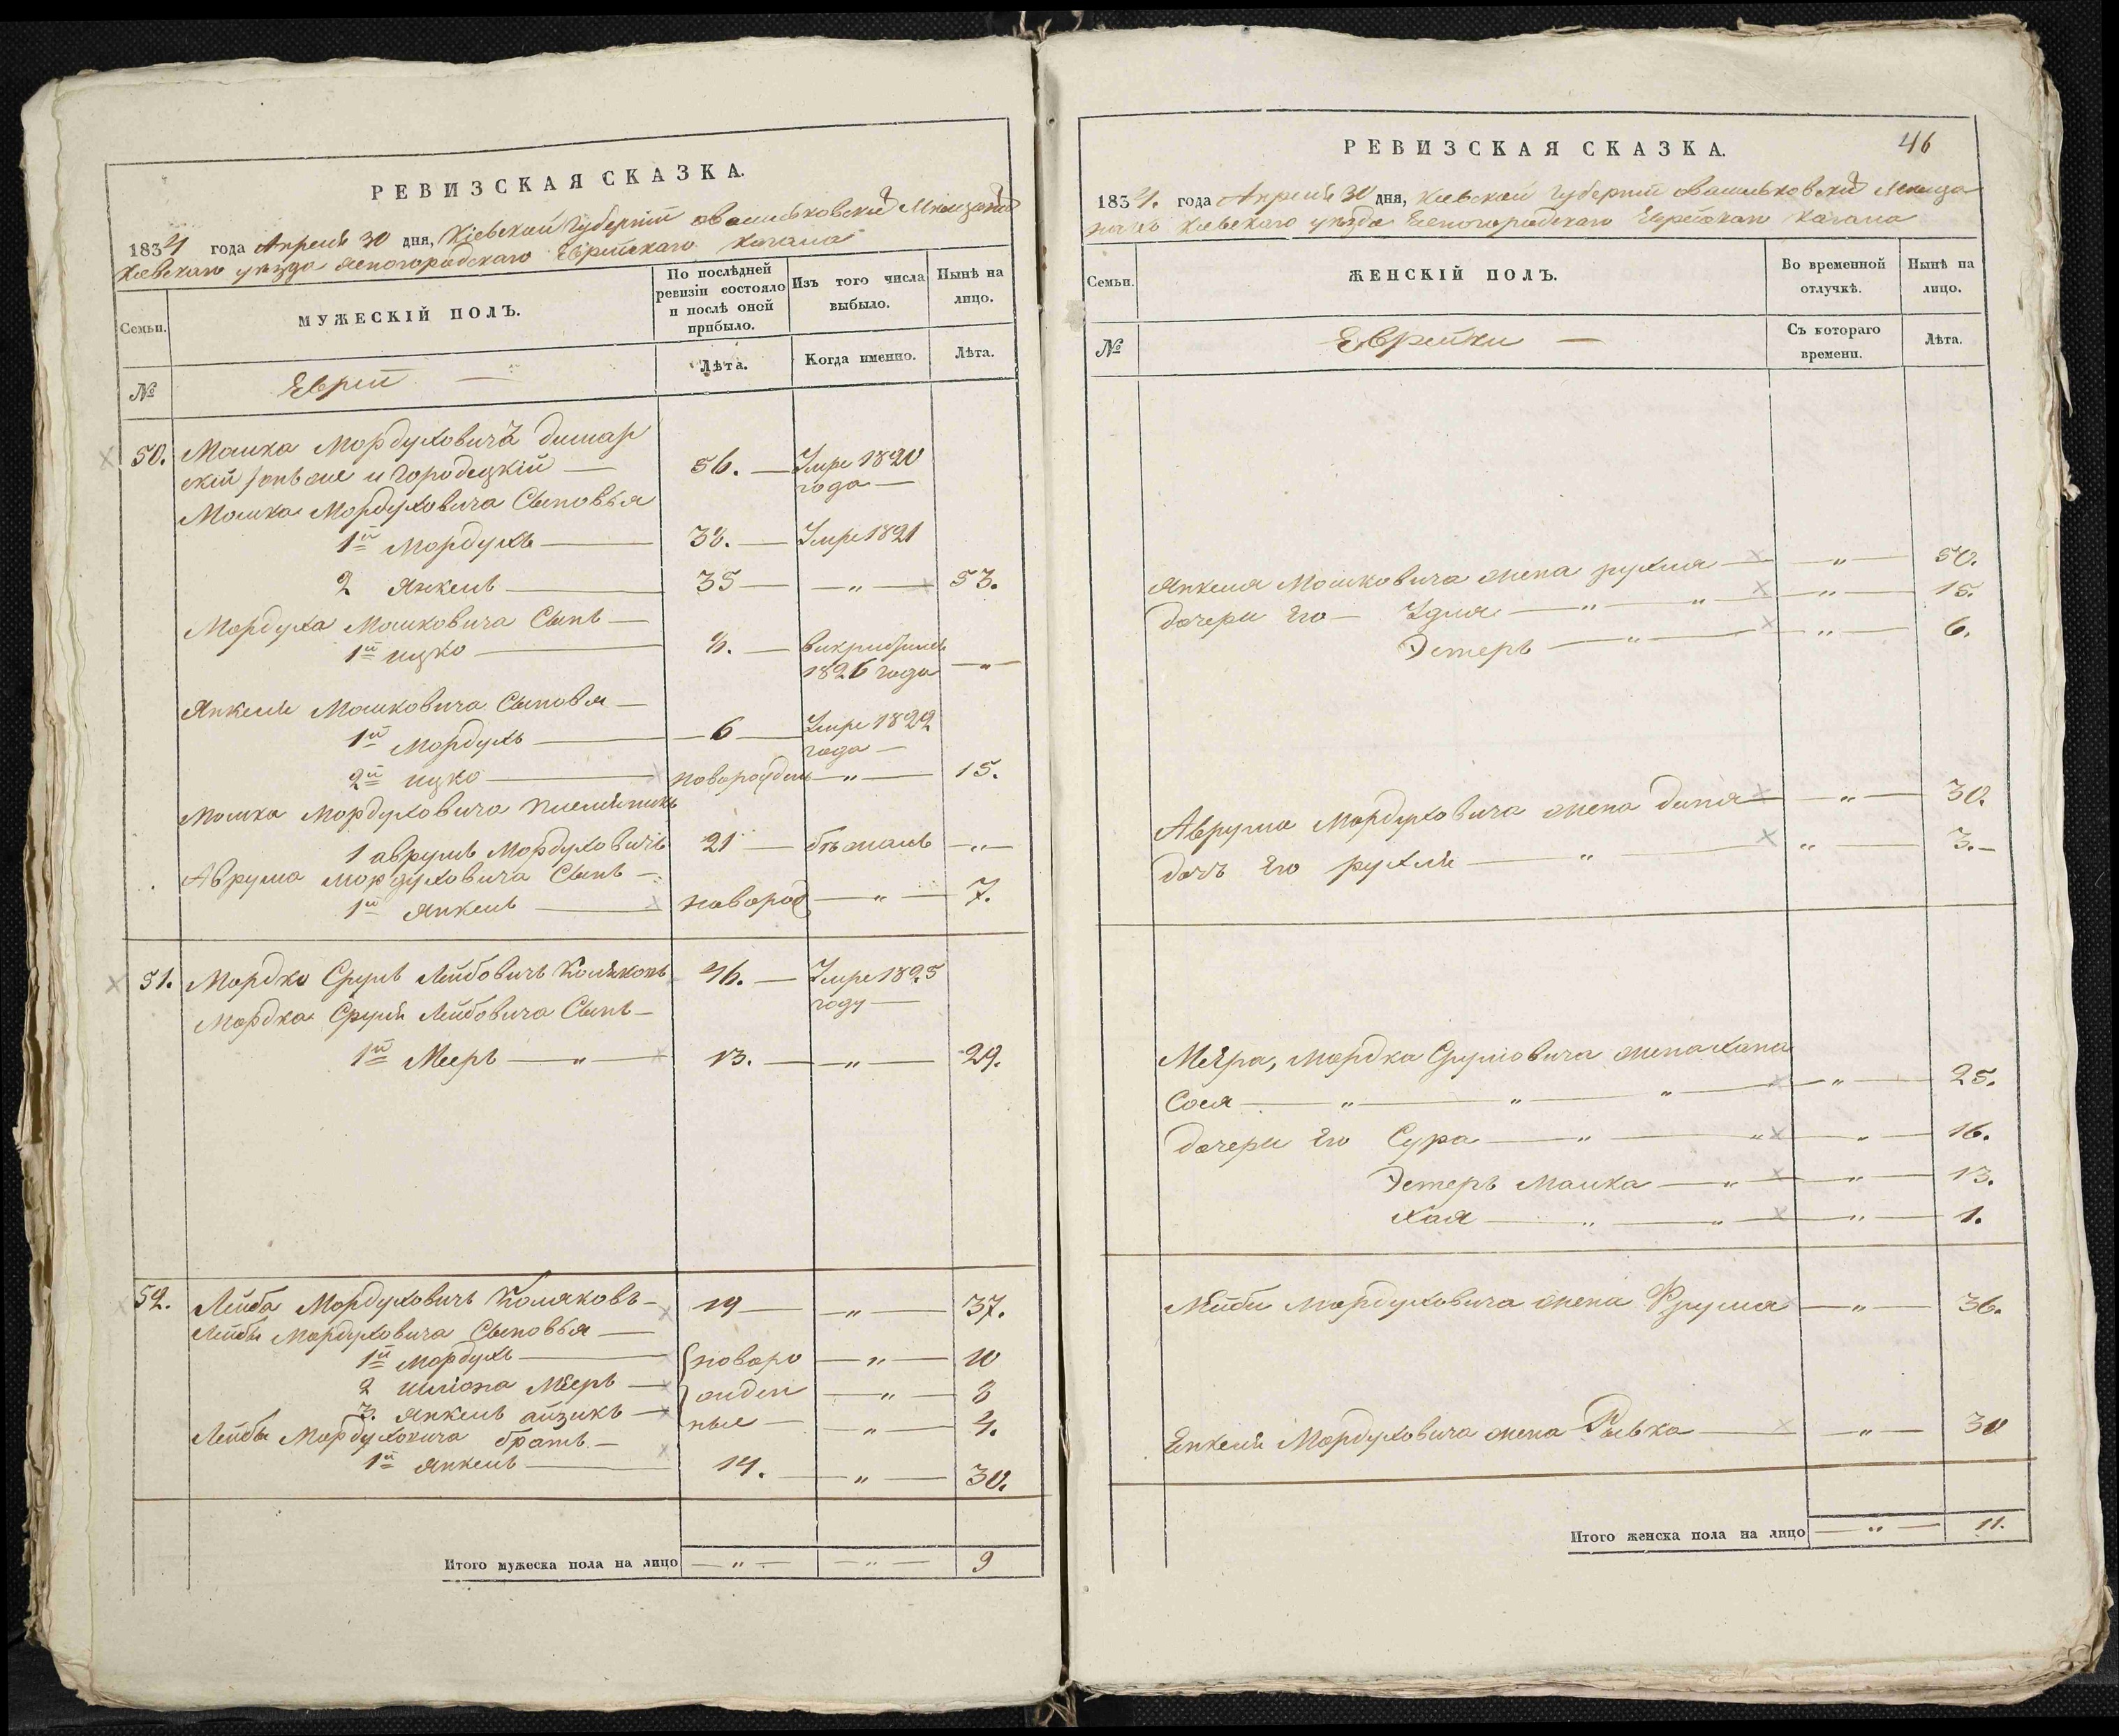 РЕВИЗСКАЯ СКАЗКА.
1834 года Апреля 30 дня, Кіевской Губерніи Васильковскій Мещанъ
Кіевскаго уезда Ясногородскаго Еврейскаго Кагала
Семьи.
МУЖЕСКІЙ ПОЛЪ.
По послѣдней ревизіи состояло и послѣ оной прибыло.
Изъ того числа выбыло.
Нынѣ на лицо.
№
Евреи —
Лѣта.
Когда именно.
Лѣта.
50. Мошка Мордуховичъ
скій онъ же и Городецкій — 56. — Умре 1820
года —
Мошка Мордуховича Сыновья
1й Мордухъ — 38. — Умре 1821
2 Янкель — 35 — „ — 53.
Мордуха Мошковича Сынъ —
1й Ицко — 8. —
1826 года — „ —
Янкеля Мошковича Сыновья —
1й Мордухъ — 6 — Умре 1822
года —
2й Ицко — новорожден — „ — 15.
Мошка Мордуховича племянникъ
1 Аврумъ Мордуховичъ 21 — бѣжалъ — „ —
Аврума Мордуховича Сынъ —
1й Янкель — новород — „ — 7.
51. Мордко Сруль Лейбовичъ 46. — Умре 1825
году —
Мордка Сруля Лейбовича Сынъ —
1й Мееръ — „ — 13. — „ — 29.
52. Лейба Мордуховичъ Коляковъ — 19 — „ — 37.
Лейбы Мордуховича Сыновья —
1й Мордухъ — новоро — „ — 10
2 Шліома Мееръ — жден — „ — 8
3. Янкель Айзикъ — ные — „ — 4.
Лейбы Мордуховича братъ —
1й Янкель — 14. — „ — 30.
Итого мужеска пола на лицо — „ — — „ — 9
РЕВИЗСКАЯ СКАЗКА.
46
1834. года Апреля 30 дня, Кіевской Губерніи Васильковскій Меща
нъ Кіевскаго уезда Ясногородскаго Еврейскаго Кагала
Семьи.
ЖЕНСКІЙ ПОЛЪ.
Во временной отлучкѣ.
Нынѣ на лицо.
№
Еврейки —
Съ котораго времени.
Лѣта.
Янкеля Мошковича жена Рухля — „ — 50.
Дочери Его — Удля — „ — „ — „ — 15.
Эстеръ — „ — „ — 6.
Аврума Мордуховича жена Диня — „ — 30.
дочъ Его Рухля — „ — „ — 3. —
Меера, Мордка Срулiовича жена Хана
Сося — „ — „ — „ — „ — 25.
Дочери Его Сура — „ — „ — „ — 16.
Эстеръ Малка — „ — „ — 13.
Хая — „ — „ — „ — 1.
Лейби Мордуховича жена Фрума — „ — 36.
Енкеля Мордуховича жена Рывка — „ — 30
Итого женска пола на лицо — „ — 11.